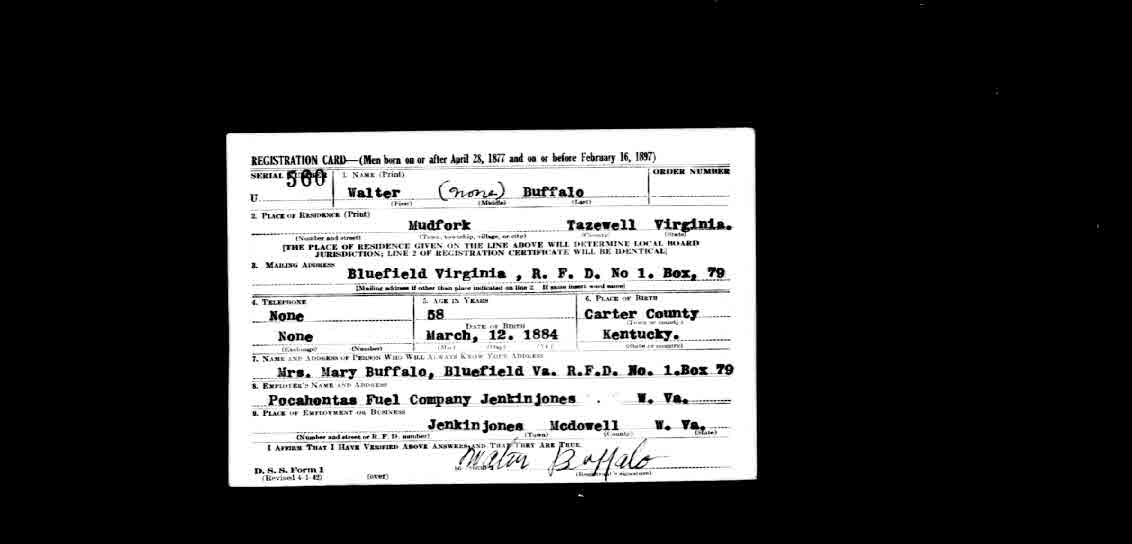 REGISTRATION CARD—(Men born on or after April 28, 1877 and on or before February 16, 1897)
SERIAL NUMBER 560 1. NAME (Print) ORDER NUMBER
U Walter (none) Buffalo
(First) (Middle) (Last)
2. PLACE OF RESIDENCE (Print)
Mudfork Tazewell Virginia.
(Number and street) (Town, township, village, or city) (County) (State)
[THE PLACE OF RESIDENCE GIVEN ON THE LINE ABOVE WILL DETERMINE LOCAL BOARD
JURISDICTION; LINE 2 OF REGISTRATION CERTIFICATE WILL BE IDENTICAL]
3. MAILING ADDRESS
Bluefield Virginia , R. F. D. No 1. Box, 79
[Mailing address if other than place indicated on line 2. If same insert word same]
4. TELEPHONE 5. AGE IN YEARS 6. PLACE OF BIRTH
None 58 Carter County
DATE OF BIRTH (Town or county)
None March, 12. 1884 Kentucky.
(Exchange) (Number) (Mo.) (Day) (Yr.) (State or country)
7. NAME AND ADDRESS OF PERSON WHO WILL ALWAYS KNOW YOUR ADDRESS
Mrs. Mary Buffalo, Bluefield Va. R.F.D. No. 1.Box 79
8. EMPLOYER'S NAME AND ADDRESS
Pocahontas Fuel Company Jenkinjones W. Va.
9. PLACE OF EMPLOYMENT OR BUSINESS
Jenkinjones Mcdowell W. Va.
(Number and street or R. F. D. number) (Town) (County) (State)
I AFFIRM THAT I HAVE VERIFIED ABOVE ANSWERS AND THAT THEY ARE TRUE.
Walter Buffalo
D. S. S. Form 1 (Registrant's signature)
(Revised 4-1-42) (over)